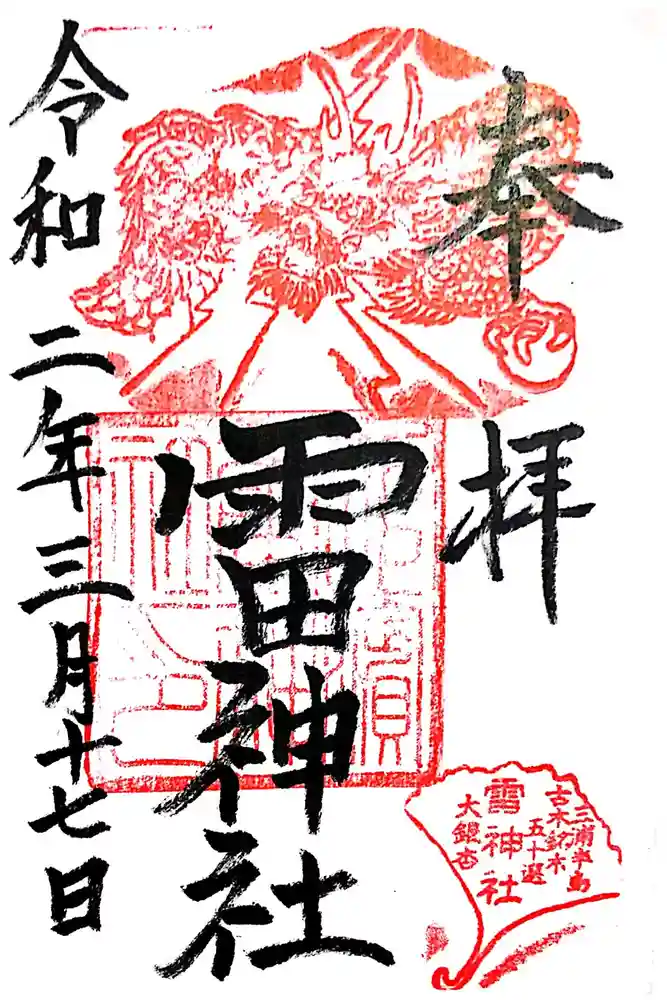 奉拝
雷神社
令和二年三月十七日
三浦半島
古木銘木
五十選
雷神社
大銀杏